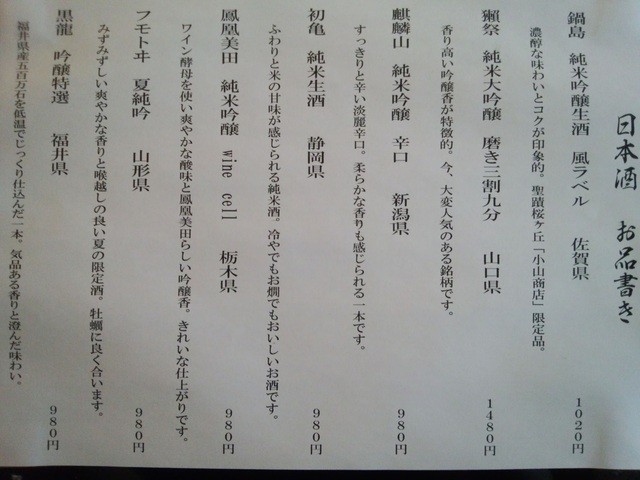 日本酒　お品書き
鍋島　純米吟醸生酒　風ラベル　佐賀県　1020円
濃醇な味わいとコクが印象的。聖蹟桜ヶ丘「小山商店」限定品。
獺祭　純米大吟醸　磨き三割九分　山口県　1480円
香り高い吟醸香が特徴的。今、大変人気のある銘柄です。
麒麟山　純米吟醸　辛口　新潟県　980円
すっきりと辛い淡麗辛口。柔らかな香りも感じられる一本です。
初亀　純米生酒　静岡県　980円
ふわりと米の甘味が感じられる純米酒。冷やでもお燗でもおいしいお酒です。
鳳凰美田　純米吟醸　wine cell　栃木県　980円
ワイン酵母を使い爽やかな酸味と鳳凰美田らしい吟醸香。きれいな仕上がりです。
フモトヰ　夏純吟　山形県　980円
みずみずしい爽やかな香りと喉越しの良い夏の限定酒。牡蠣に良く合います。
黒龍　吟醸特選　福井県　980円
福井県産五百万石を低温でじっくり仕込んだ一本。気品ある香りと澄んだ味わい。